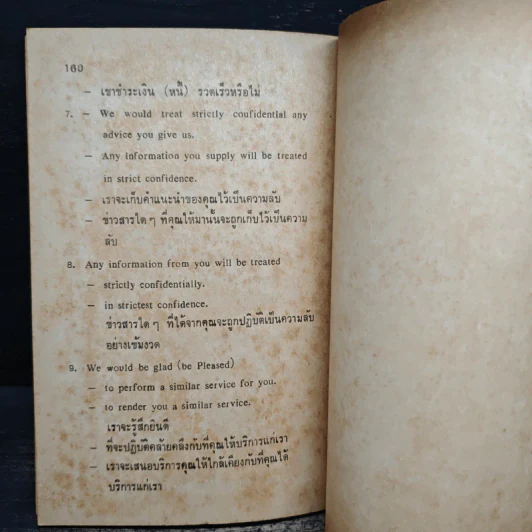 160
– เขาชำระเงิน (หนี้) รวดเร็วหรือไม่
7. – We would treat strictly coufidential any
advice you give us.
– Any information you supply will be treated
in strict confidence.
– เราจะเก็บคำแนะนำของคุณไว้เป็นความลับ
– ข่าวสารใด ๆ ที่คุณให้มานั้นจะถูกเก็บไว้เป็นความ
ลับ
8. Any information from you will be treated
– strictly confidentially.
– in strictest confidence.
ข่าวสารใด ๆ ที่ได้จากคุณจะถูกปฏิบัติเป็นความลับ
อย่างเข้มงวด
9. We would be glad (be Pleased)
– to perform a similar service for you.
– to render you a similar service.
เราจะรู้สึกยินดี
– ที่จะปฏิบัติคล้ายคลึงกับที่คุณให้บริการแก่เรา
– เราจะเสนอบริการคุณให้ใกล้เคียงกับที่คุณได้
บริการแก่เรา